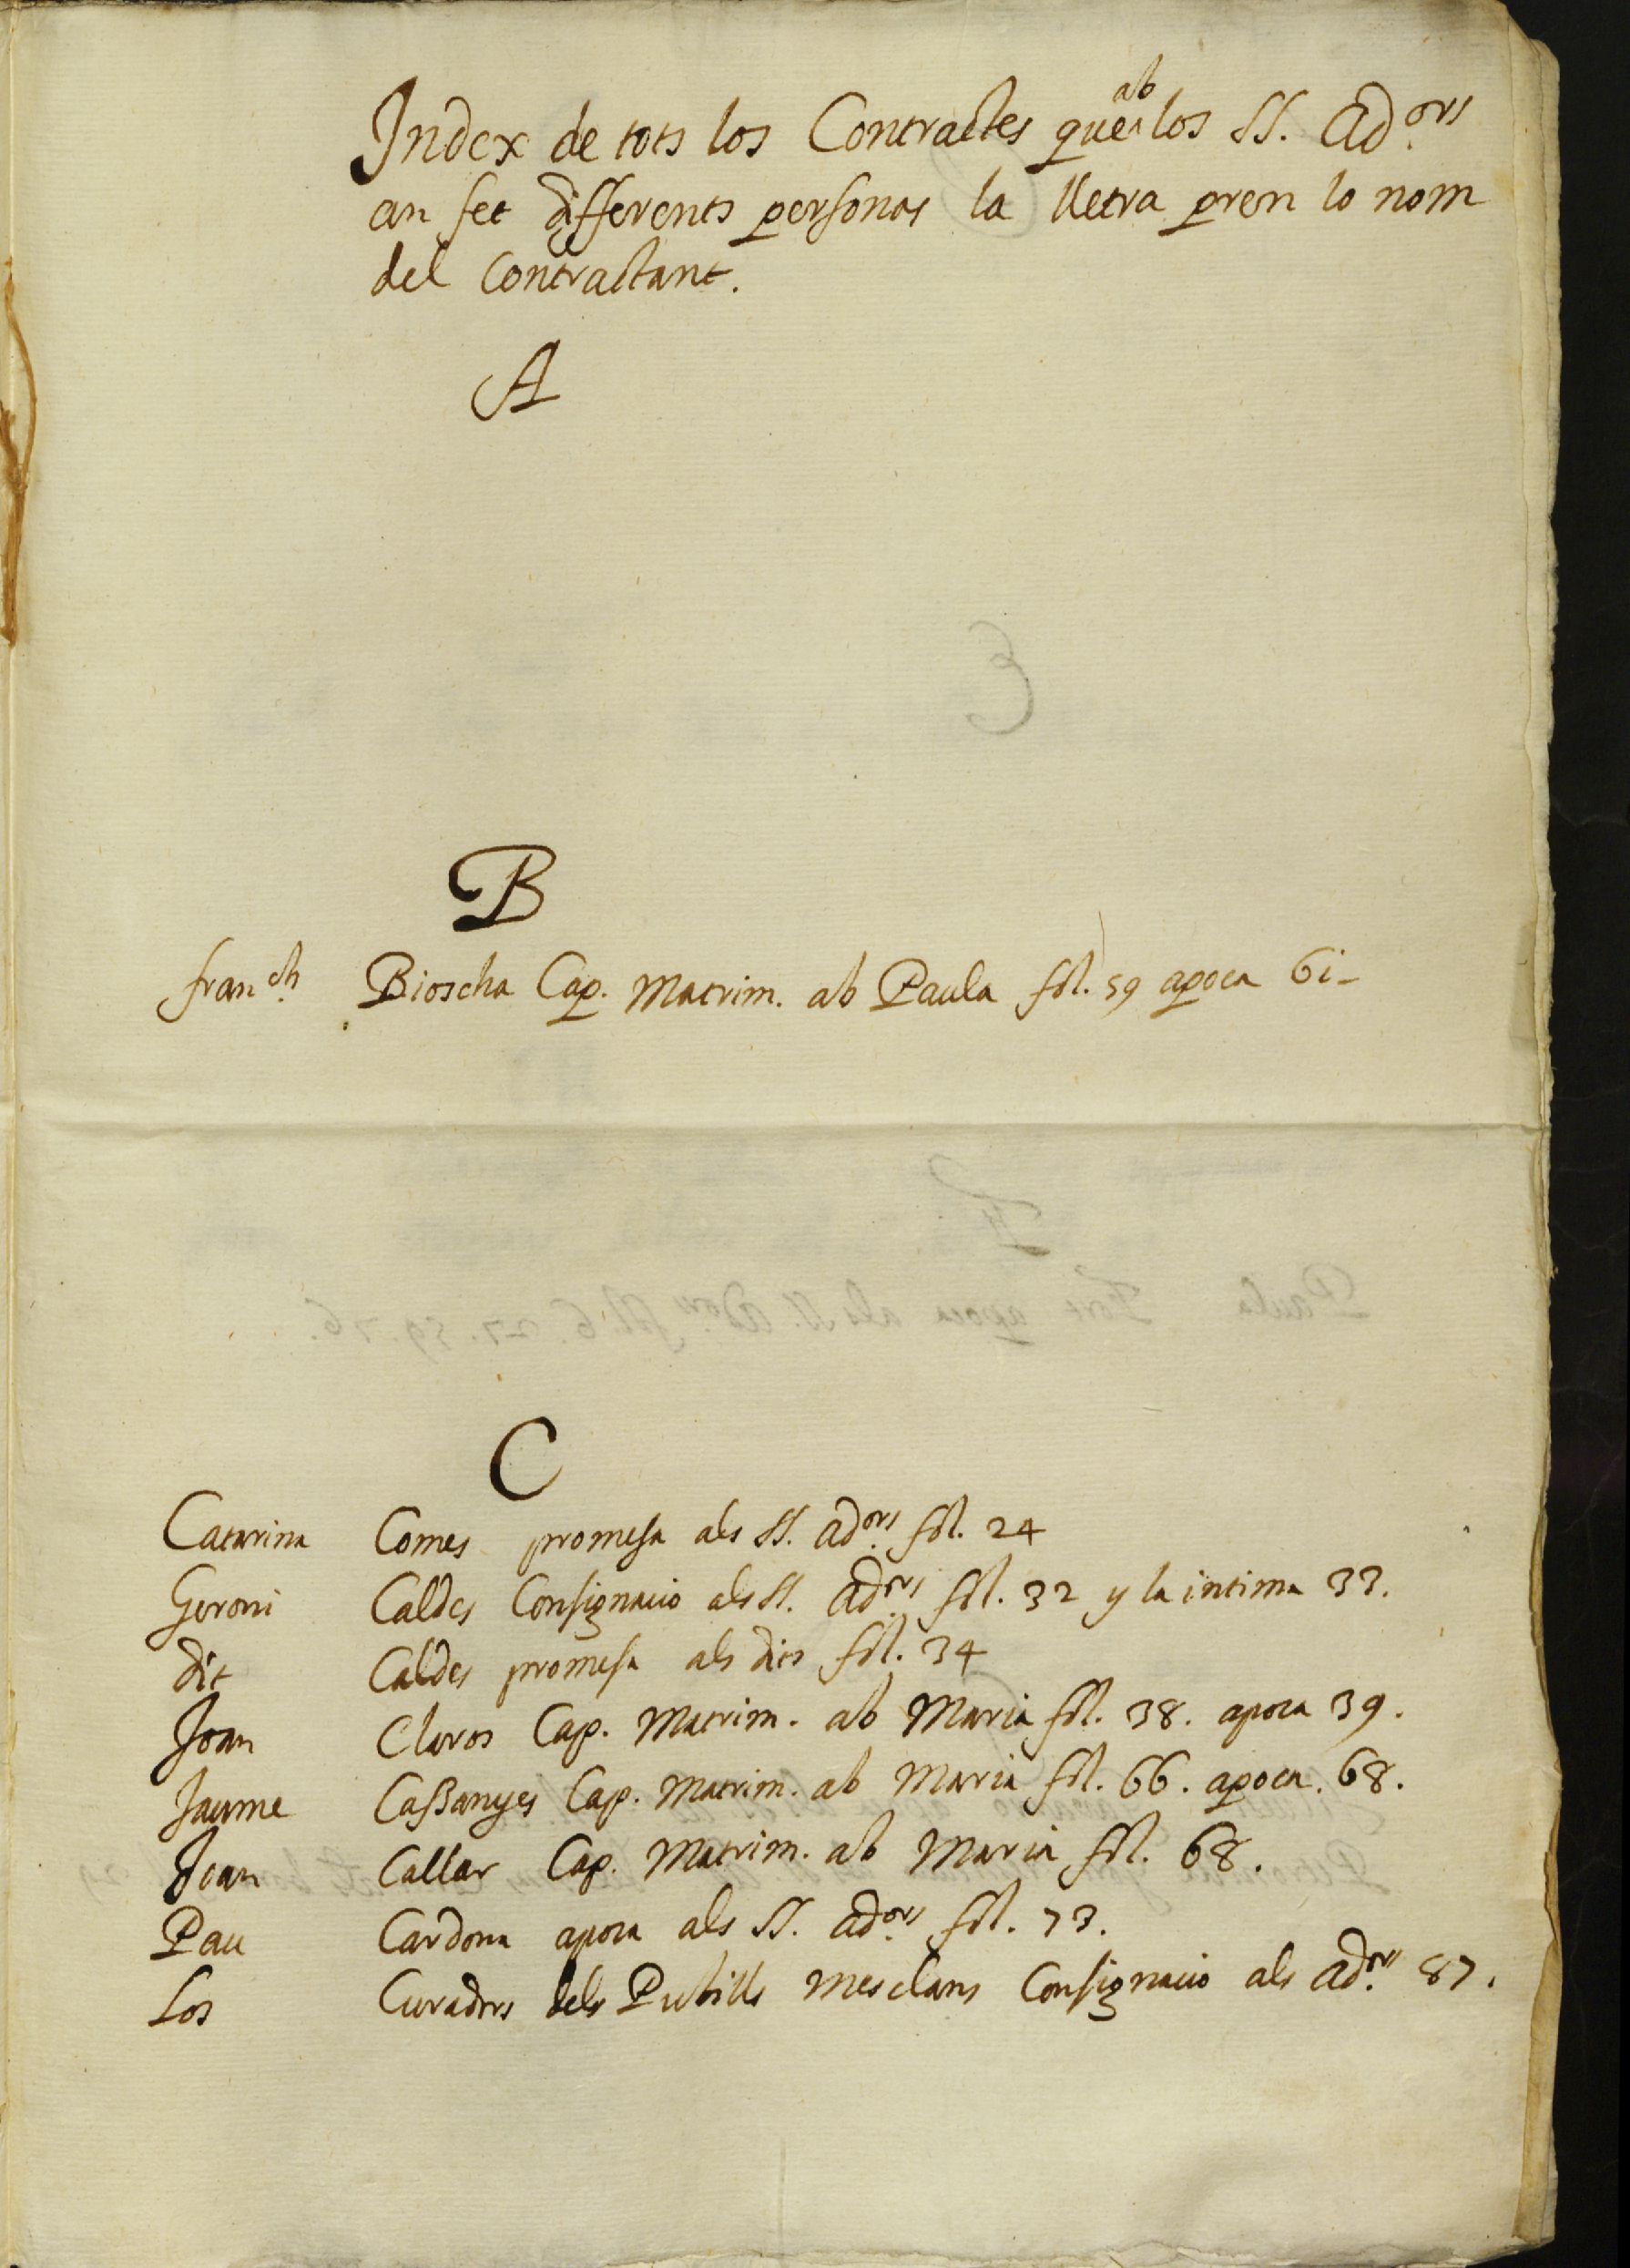 Index de tots los Contractes que ab los SS. Ad.ors
an fet differents personas la lletra pren lo nom
del Contractant.
A
B
Fran.ch Bioscha Cap. Matrim. ab Paula fol. 59 apoca 61-
C
Catarina Comes promesa als SS. Ad.ors fol. 24
Geroni Caldes Consignacio als SS. Ad.ors fol. 32 y la intima 33.
dit Caldes promesa als dits fol. 34
Joan Claros Cap. Matrim. ab Maria fol. 38. apoca 39.
Jaume Cassanyes Cap. Matrim. ab Maria fol. 66. apoca. 68.
Joan Callar Cap. Matrim. ab Maria fol. 68.
Pau Cardona apoca als SS. Ad.ors fol. 73.
Los Curadors dels Pubills Mesclans Consignacio als Ad.ors 87.